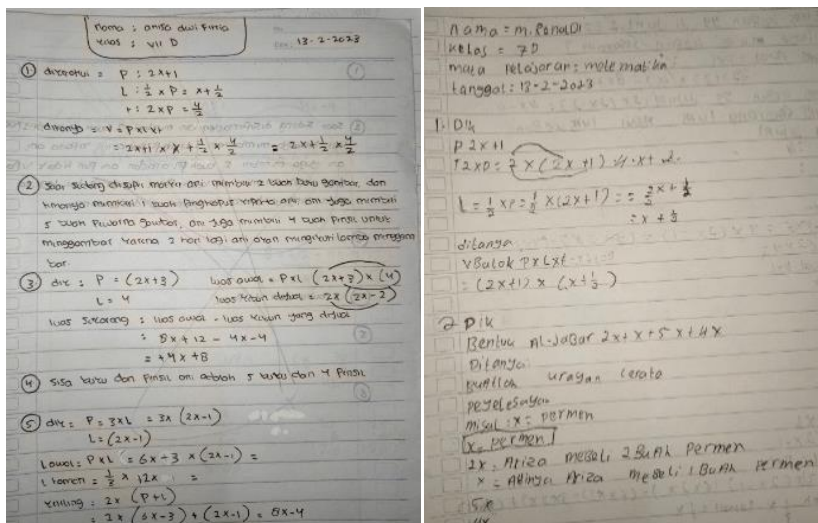 Nama : anisa dwi Fitria
kelas : VII D
13-2-2023
① diketahui = P : 2x+1
L : 1/2 x P = x + 1/2
t : 2xP = 4/2
ditanya = V = PxLxt
= 2x+1 x x + 1/2 x 4/2 = 2x + 1/2 x 4/2
② Saat sedang ani membeli 2 buah buku gambar, dan
1 buah Penghapus ani, ani Juga membeli
5 buah Pewarna ani Juga membeli 4 buah Pensil untuk
menggambar karena 2 hari lagi ani akan mengikuti lomba menggam
bar.
③ dik : P = (2x+3) luas awal = PxL (2x+3)x(4)
L = 4 luas kebun dijual = 2x (2x-2)
luas Sekarang : luas awal - luas kebun yang dijual
= 8x + 12 - 4x - 4
= +4x +8
④ Sisa buku dan Pensil ani adalah 5 buku dan 4 Pensil
⑤ dik = P = 3xL = 3x (2x-1)
L = (2x-1)
L awal = PxL = 6x-3 x (2x-1) =
x 12x =
keliling = 2x (P+L)
= 2x (6x-3) + (2x-1) = 8x-4
Nama = M.
kelas = 7D
mata pelajaran : matematika
tanggal : 13-2-2023
1. Dik
P 2x+1
T 2xP = 2 x (2x+1) 4x+2
L = 1/2 xP = 1/2 x (2x+1) = = 2/2x + 1/2
= x + 1/2
ditanya
V Balok PxLxt
= (2x+1) x (x+1/2)
2 Dik
Bentuk Al-JaBar 2x + x + 5x + 4x
Ditanya
Buatlah urayan cerata
peyelesayan
misal : x = permen
x = permen
2x = Ariza meBeli 2 BuAh Permen
x = ADinya Ariza meBeli 1 BuAh Permen
5x
4x